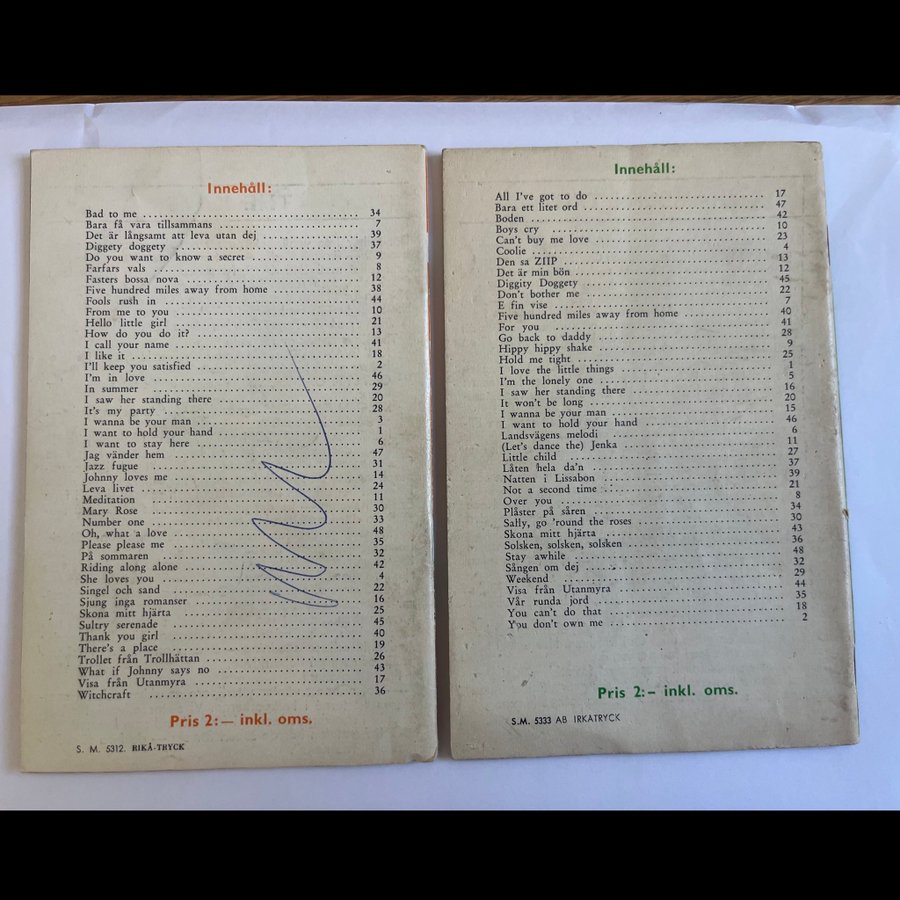 Innehåll:
Bad to me 34
Bara få vara tillsammans 7
Det är långsamt att leva utan dej 39
Diggety doggety 37
Do you want to know a secret 9
Farfars vals 8
Fasters bossa nova 12
Five hundred miles away from home 38
Fools rush in 44
From me to you 10
Hello little girl 21
How do you do it? 13
I call your name 41
I like it 18
I'll keep you satisfied 2
I'm in love 46
In summer 29
I saw her standing there 20
It's my party 28
I wanna be your man 3
I want to hold your hand 1
I want to stay here 6
Jag vänder hem 47
Jazz fugue 31
Johnny loves me 14
Leva livet 24
Meditation 11
Mary Rose 30
Number one 33
Oh, what a love 48
Please please me 35
På sommaren 32
Riding along alone 42
She loves you 4
Singel och sand 22
Sjung inga romanser 16
Skona mitt hjärta 25
Sultry serenade 45
Thank you girl 40
There's a place 19
Trollet från Trollhättan 26
What if Johnny says no 43
Visa från Utanmyra 17
Witchcraft 36
Pris 2:— inkl. oms.
S. M. 5312. RIKÅ-TRYCK
Innehåll:
All I've got to do 17
Bara ett litet ord 47
Boden 42
Boys cry 10
Can't buy me love 23
Coolie 4
Den sa ZIIP 13
Det är min bön 12
Diggity Doggety 45
Don't bother me 22
E fin vise 7
Five hundred miles away from home 40
For you 41
Go back to daddy 28
Hippy hippy shake 9
Hold me tight 25
I love the little things 1
I'm the lonely one 5
I saw her standing there 16
It won't be long 20
I wanna be your man 15
I want to hold your hand 46
Landsvägens melodi 6
(Let's dance the) Jenka 11
Little child 27
Låten hela da'n 37
Natten i Lissabon 39
Not a second time 21
Over you 8
Plåster på såren 34
Sally, go 'round the roses 30
Skona mitt hjärta 43
Solsken, solsken, solsken 36
Stay awhile 48
Sången om dej 32
Weekend 29
Visa från Utanmyra 44
Vår runda jord 35
You can't do that 18
You don't own me 2
Pris 2:- inkl. oms.
S.M. 5333 AB IRKATRYCK